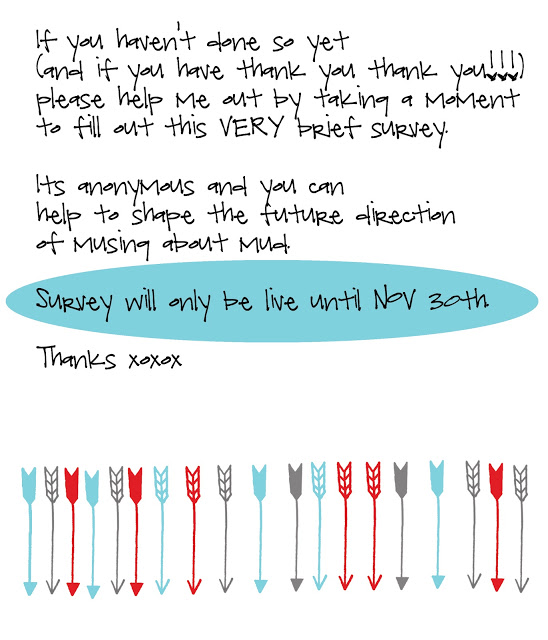 If you haven't done so yet
(and if you have thank you thank you!!!)
please help me out by taking a moment
to fill out this VERY brief survey.
Its anonymous and you can
help to shape the future direction
of Musing about Mud.
Survey will only be live until Nov 30th.
Thanks xoxox